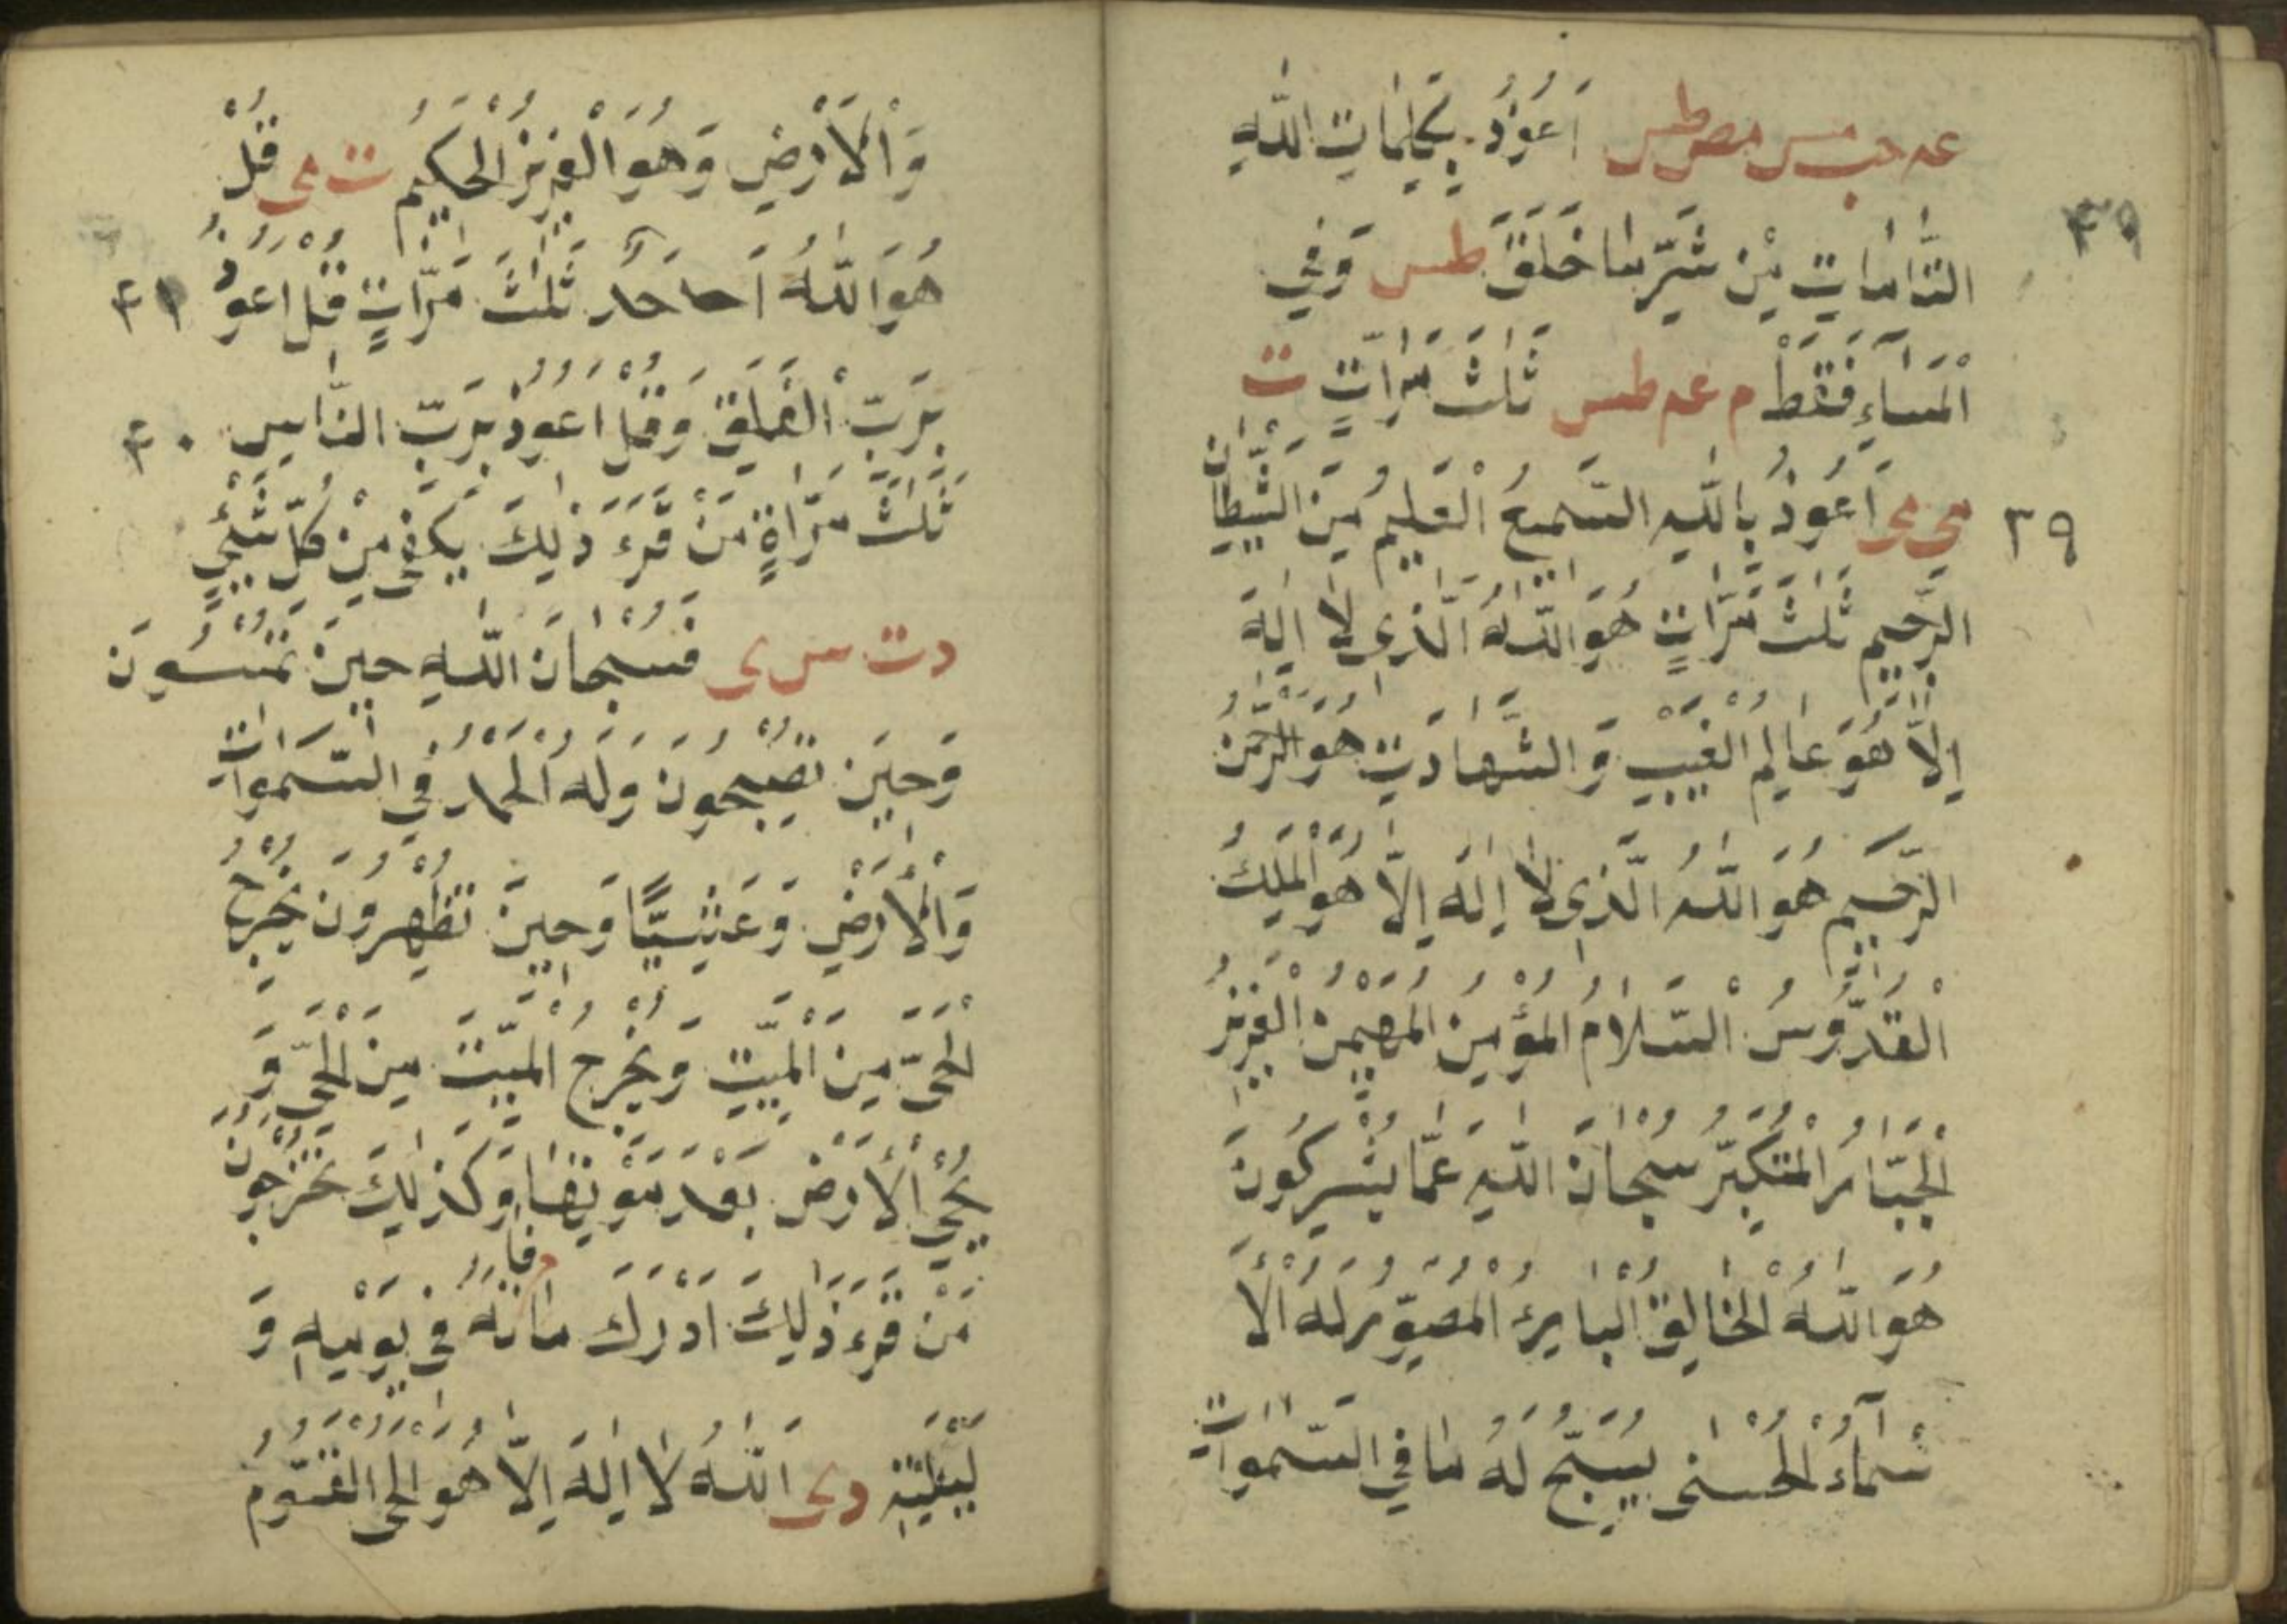 عه حب مس مص طس اَعُوْذُ بِكَلِمَاتِ اللّٰهِ
٣٩
التَّامَاتِ مِنْ شَرِّ مَا خَلَقَ طس وَفِي
الْمَسَاءِ فَقَطْ م عه طس ثَلٰثَ مَرَّاتٍ ت
٣٩ مى مى اَعُوذُ بِاللّٰهِ السَّمِيعُ الْعَلِيمُ مِنَ الشَّيْطَانِ
الرَّجِيمِ ثَلٰثَ مَرَّاتٍ هُوَ اللّٰهُ الَّذِي لَا اِلٰهَ
اِلَّا هُوَ عَالِمُ الْغَيْبِ وَالشَّهَادَتِ هُوَ الرَّحْمٰنُ
الرَّحِيمُ هُوَ اللّٰهُ الَّذِي لَا اِلٰهَ اِلَّا هُوَ الْمَلِكُ
الْقُدُّوسُ السَّلَامُ الْمُؤْمِنُ الْمُهَيْمِنُ الْعَزِيزُ
الْجَبَّارُ الْمُتَكَبِّرُ سُبْحَانَ اللّٰهِ عَمَّا يُشْرِكُونَ
هُوَ اللّٰهُ الْخَالِقُ الْبَارِئُ الْمُصَوِّرُ لَهُ الْاَ
سْمَآءُ الْحُسْنٰى يُسَبِّحُ لَهُ مَا فِي السَّمٰوَاتِ
وَالْاَرْضِ وَهُوَ الْعَزِيزُ الْحَكِيمُ ت مى قُلْ
هُوَ اللّٰهُ اَحَد ثَلٰثَ مَرَّاتٍ قُلْ اَعُوْذُ ٤١
بِرَبِّ الْفَلَقِ وَقُلْ اَعُوذُ بِرَبِّ النَّاسِ ٤٠
ثَلٰثَ مَرَّاةٍ مَنْ قَرَءَ ذٰلِكَ يَكْفِى مِنْ كُلِّ شَيْءٍ
د ت س ى فَسُبْحَانَ اللّٰهِ حِينَ تُمْسُونَ
وَحِينَ تُصْبِحُونَ وَلَهُ الْحَمْدُ فِي السَّمٰوَاتِ
وَالْاَرْضِ وَعَشِيًّا وَحِينَ تُظْهِرُونَ يُخْرِجُ
الْحَىَّ مِنَ الْمَيِّتِ وَيُخْرِجُ الْمَيِّتَ مِنَ الْحَىِّ وَ
يُحْيِ الْاَرْضَ بَعْدَ مَوْتِهَا وَكَذٰلِكَ تُخْرَجُونَ
مَنْ قَرَءَ ذٰلِكَ اَدْرَكَ مَا فَاتَهُ فِي يَوْمِهِ وَ
لَيْلَتِهِ دى اَللّٰهُ لَا اِلٰهَ اِلَّا هُوَ الْحَىُّ الْقَيُّومُ